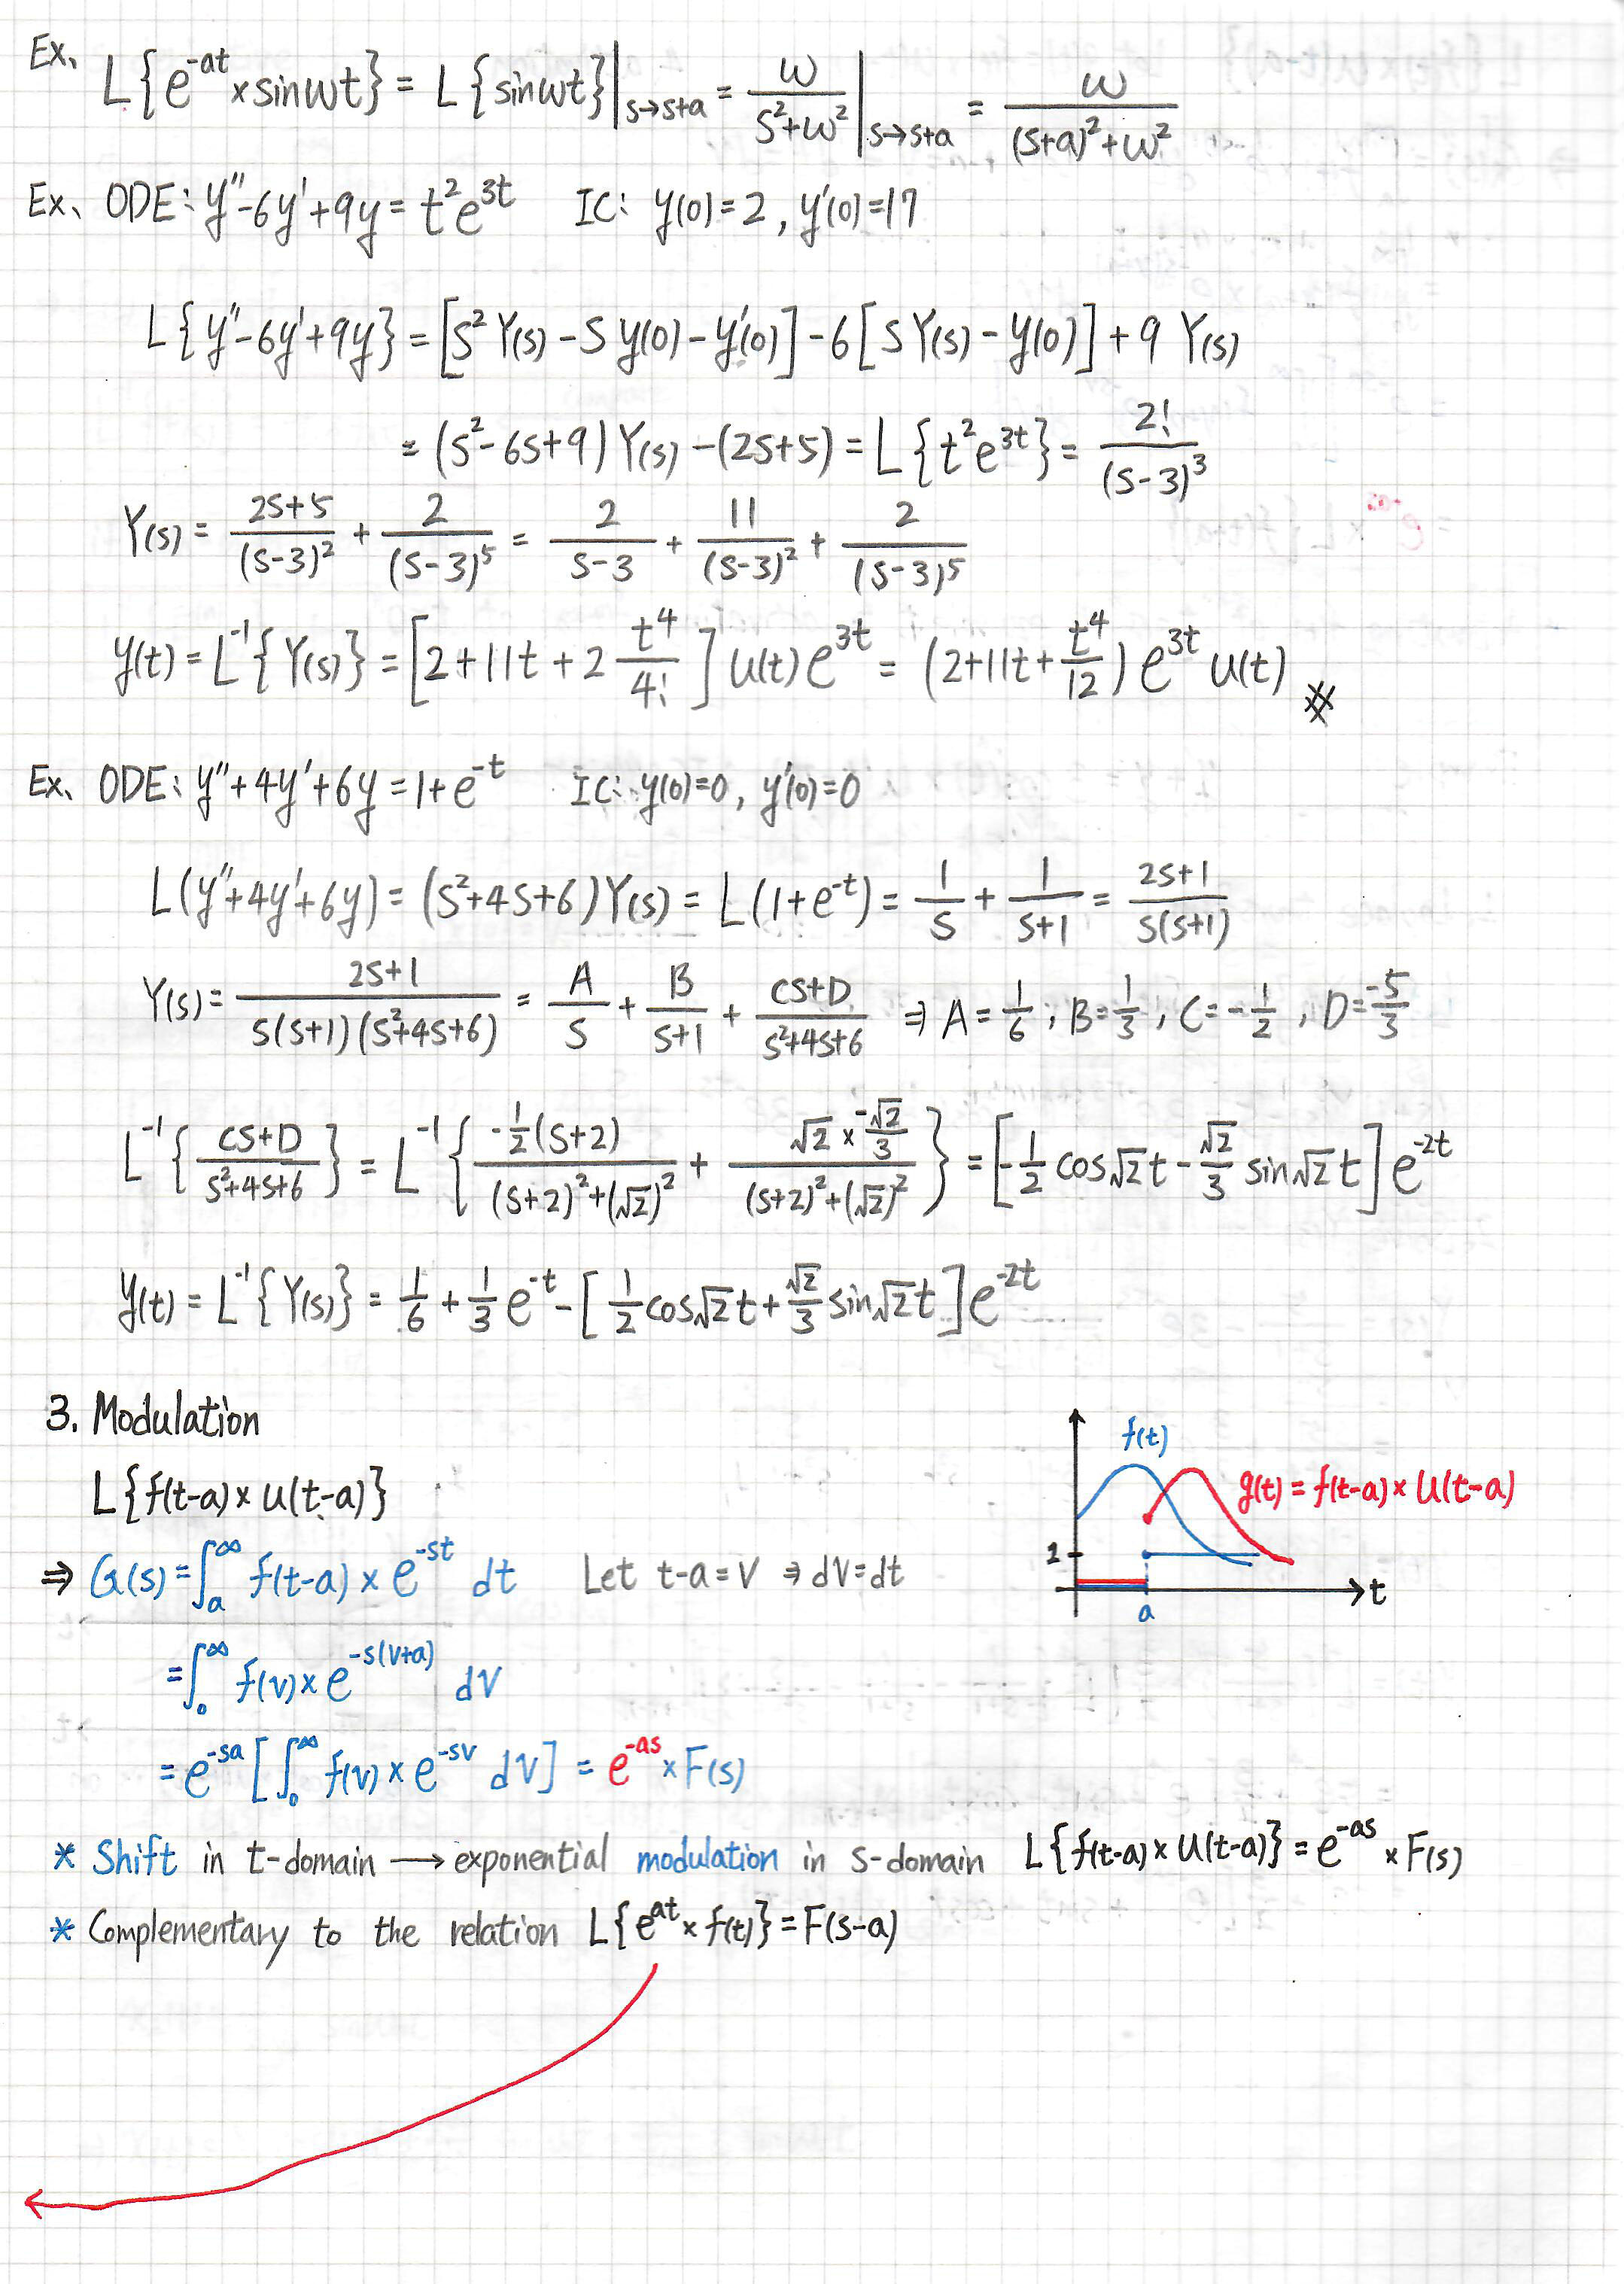 Ex、 L{e^{-at} × sinωt} = L{sinωt}|_{s→s+a} = ω/(s²+ω²)|_{s→s+a} = ω/((s+a)²+ω²)
Ex、 ODE: y''-6y'+9y = t²e^{3t} IC: y(0)=2, y'(0)=17
L{y''-6y'+9y} = [s²Y(s) - s y(0) - y'(0)] - 6[sY(s) - y(0)] + 9 Y(s)
= (s²-6s+9)Y(s) - (2s+5) = L{t²e^{3t}} = 2!/(s-3)³
Y(s) = (2s+5)/(s-3)² + 2/(s-3)⁵ = 2/(s-3) + 11/(s-3)² + 2/(s-3)⁵
y(t) = L⁻¹{Y(s)} = [2+11t+2 t⁴/4!] u(t) e^{3t} = (2+11t+t⁴/12) e^{3t} u(t) ※
Ex、 ODE: y''+4y'+6y = 1+e^{-t} IC: y(0)=0, y'(0)=0
L(y''+4y'+6y) = (s²+4s+6)Y(s) = L(1+e^{-t}) = 1/s + 1/(s+1) = (2s+1)/(s(s+1))
Y(s) = (2s+1)/(s(s+1)(s²+4s+6)) = A/s + B/(s+1) + (Cs+D)/(s²+4s+6) ⇒ A = 1/6 ; B = 1/3 , C = -1/2 , D = -5/3
L⁻¹{(Cs+D)/(s²+4s+6)} = L⁻¹{-1/2(s+2)/((s+2)²+(√2)²) + (√2 × -√2/3)/((s+2)²+(√2)²)} = [-1/2 cos√2t - √2/3 sin√2t] e^{-2t}
y(t) = L⁻¹{Y(s)} = 1/6 + 1/3 e^{-t} - [1/2 cos√2t + √2/3 sin√2t] e^{-2t}
3. Modulation
L{f(t-a) × u(t-a)}
⇒ G(s) = ∫_a^∞ f(t-a) × e^{-st} dt Let t-a = v ⇒ dv = dt
= ∫_0^∞ f(v) × e^{-s(v+a)} dv
= e^{-sa} [∫_0^∞ f(v) × e^{-sv} dv] = e^{-as} × F(s)
f(t)
g(t) = f(t-a) × u(t-a)
1
t
a
* Shift in t-domain ⟶ exponential modulation in s-domain L{f(t-a) × u(t-a)} = e^{-as} × F(s)
* Complementary to the relation L{e^{at} × f(t)} = F(s-a)